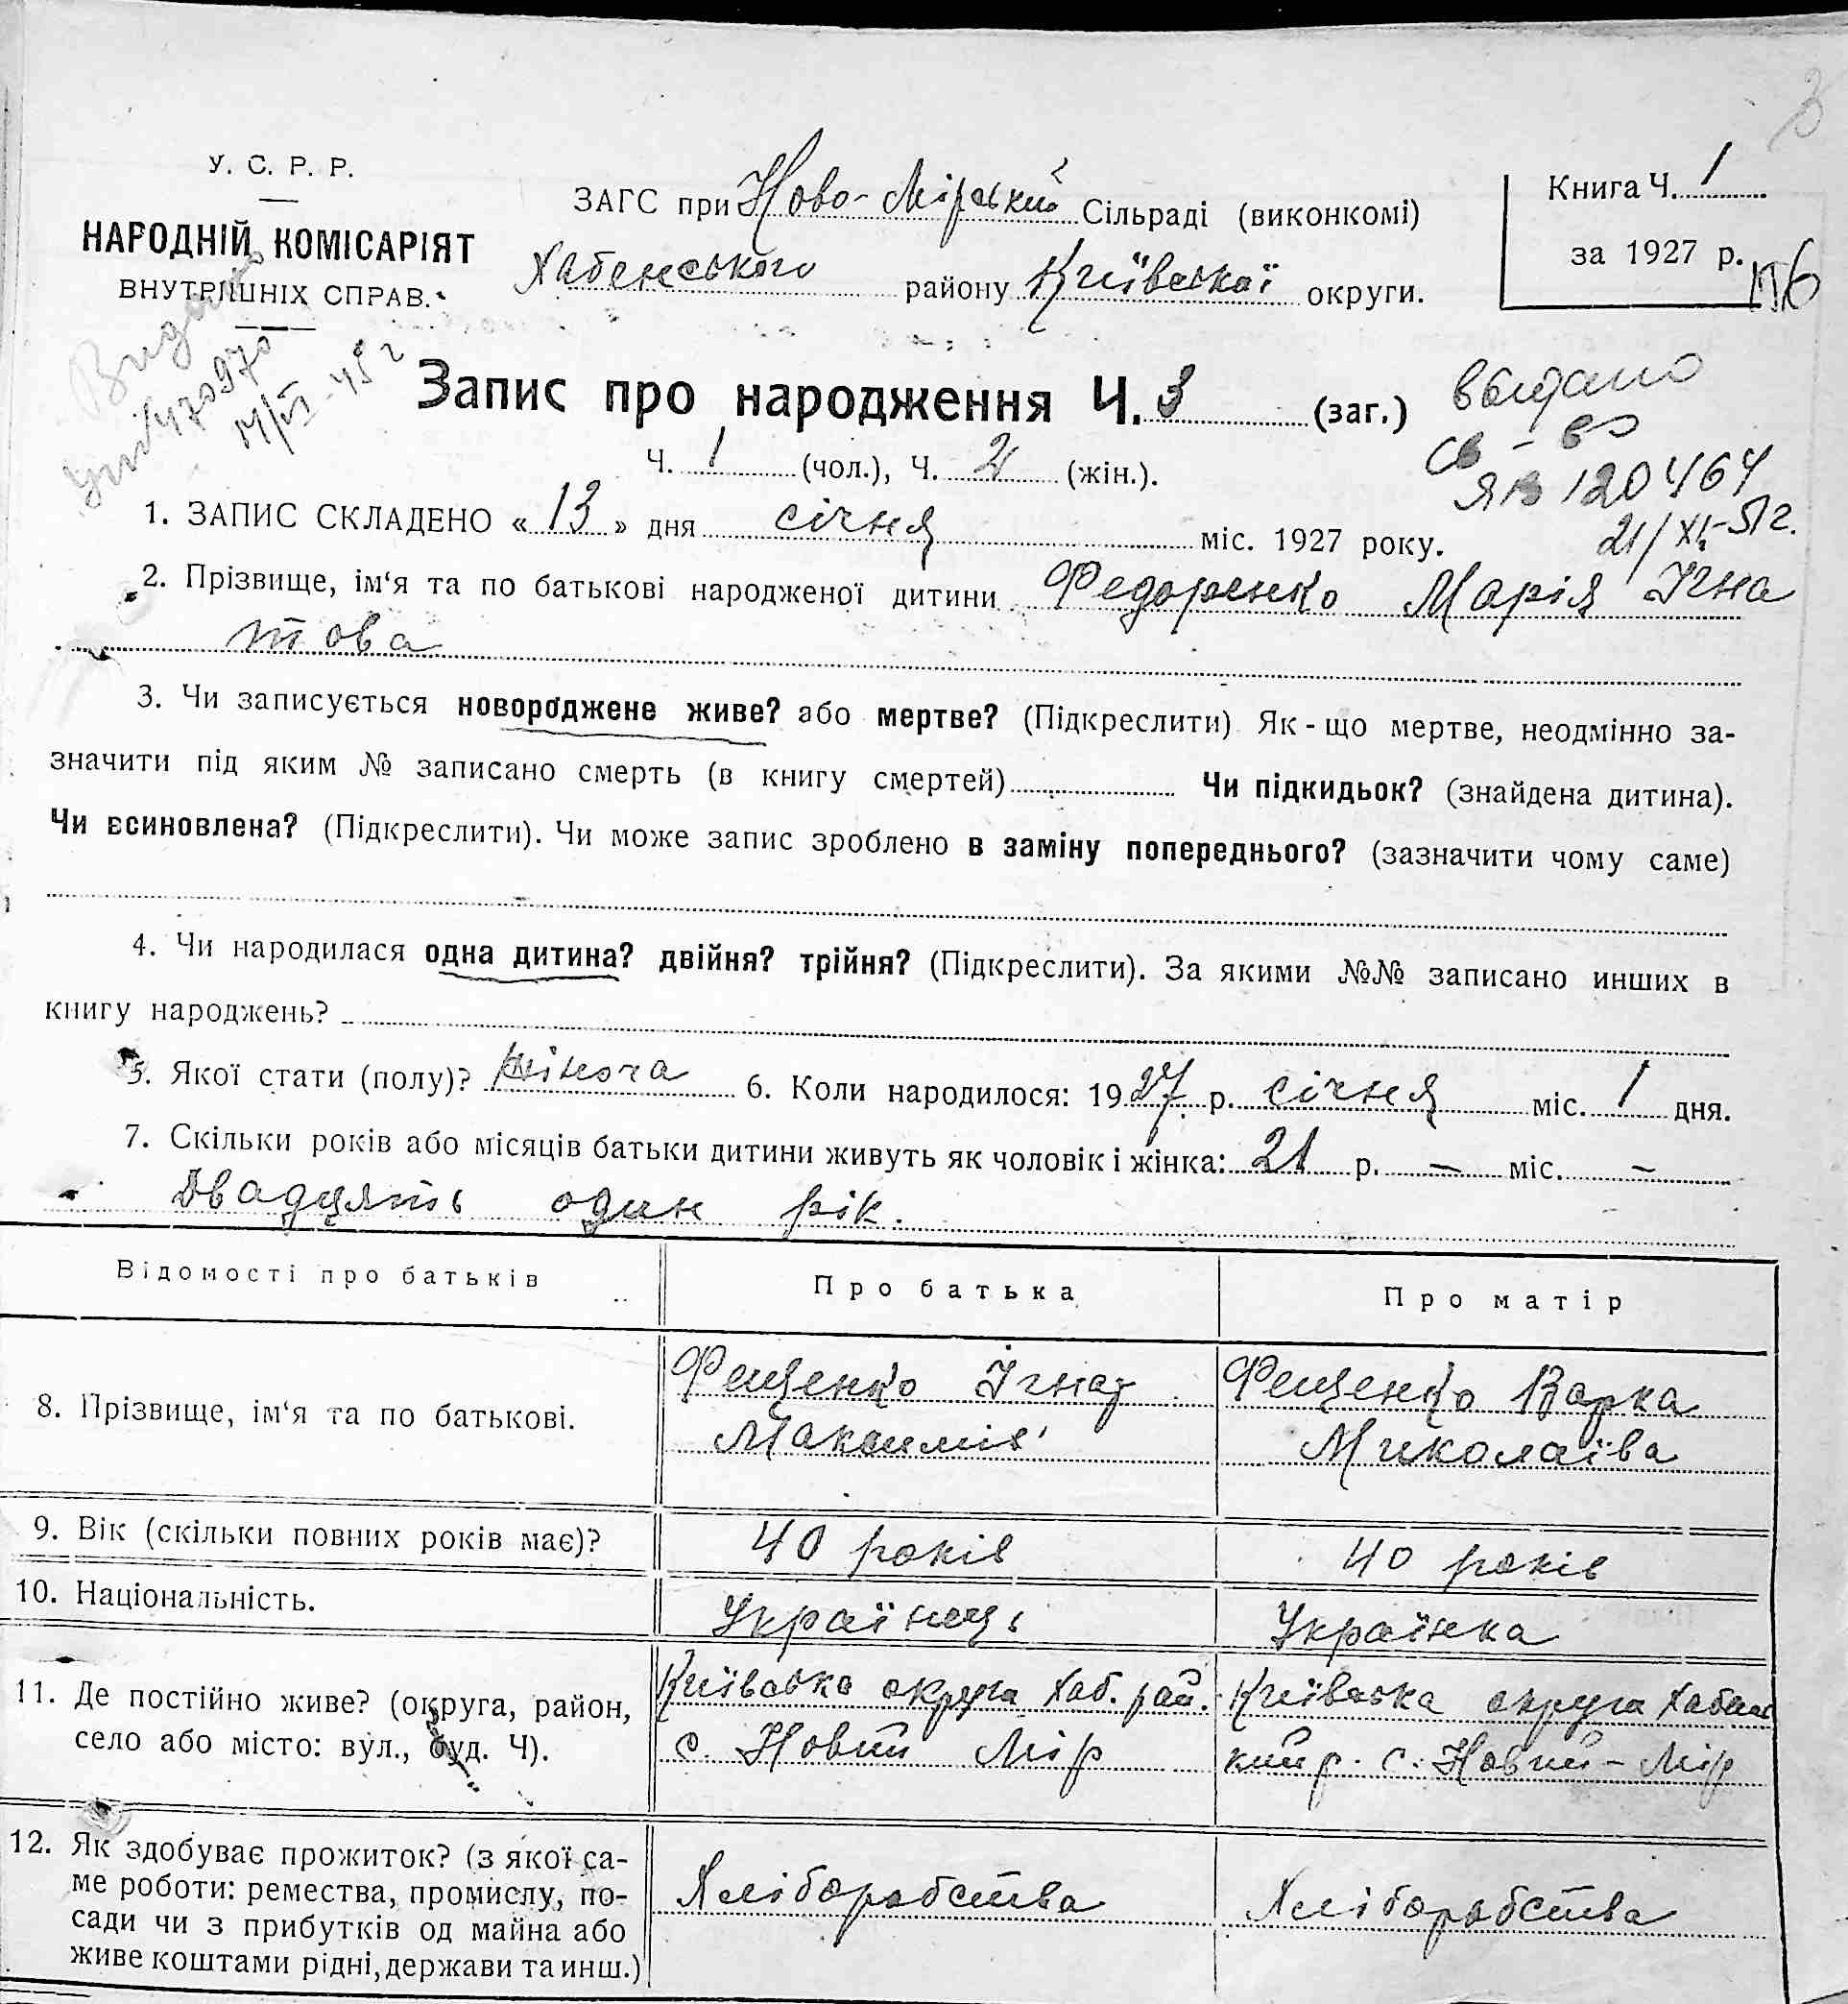 3
У. С. Р. Р.
НАРОДНІЙ КОМІСАРІЯТ
ВНУТРІШНІХ СПРАВ.
ЗАГС при Ново-Мірський Сільраді (виконкомі)
Хабенського району Київської округи.
Книга Ч. 1
за 1927 р.
Видано
470970
Запис про народження Ч. 3 (заг.)
Ч. 1 (чол.), Ч. 2 (жін.).
выдано
св-во
ЯВ 120464
21/XI-51г.
1. ЗАПИС СКЛАДЕНО «13» дня січня міс. 1927 року.
2. Прізвище, ім‘я та по батькові народженої дитини Федоренко Марія Ігна
това
3. Чи записується новороджене живе? або мертве? (Підкреслити) Як-що мертве, неодмінно за-
значити під яким № записано смерть (в книгу смертей) Чи підкидьок? (знайдена дитина).
Чи всиновлена? (Підкреслити). Чи може запис зроблено в заміну попереднього? (зазначити чому саме)
4. Чи народилася одна дитина? двійня? трійня? (Підкреслити). За якими №№ записано инших в
книгу народжень?
5. Якої стати (полу)? жіноча 6. Коли народилося: 1927 р. січня міс. 1 дня.
7. Скільки років або місяців батьки дитини живуть як чоловік і жінка: 21 р. — міс. —
Двадцять один рік.
Відомості про батьків
Про батька
Про матір
8. Прізвище, ім‘я та по батькові.
Фещенко Ігнат
Максимів
Фещенко Варка
Миколаїва
9. Вік (скільки повних років має)?
40 років
40 років
10. Національність.
Українець
Українка
11. Де постійно живе? (округа, район,
село або місто: вул., буд. Ч).
Київська округа Хаб. рай.
с. Новий Мір
Київська округа Хабен
кий р. с. Новий-Мір
12. Як здобуває прожиток? (з якої са-
ме роботи: ремества, промислу, по-
сади чи з прибутків од майна або
живе коштами рідні, держави та инш.)
Хліборобства
Хліборобства